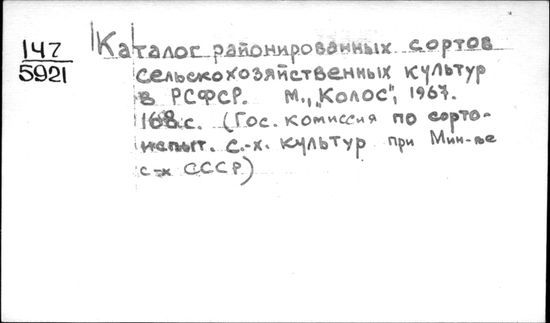 147
5921
Каталог районированных сортов
сельскохозяйственных культур
в РСФСР. М., „Колос", 1967.
168 с. (Гос. комиссия по сорто-
испыт. с.-х. культур при Мин-ве
с-х СССР)